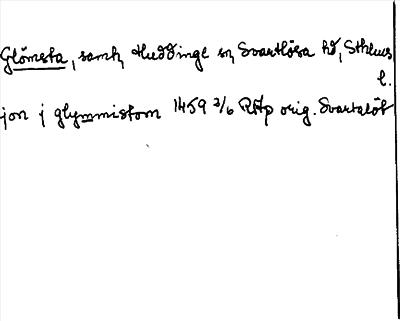 Glömsta, samh, Huddinge sn, Svartlösa hd, Sthlms
l.
jon j glymmistom 1459 2/6 RAp orig. Svartalöt